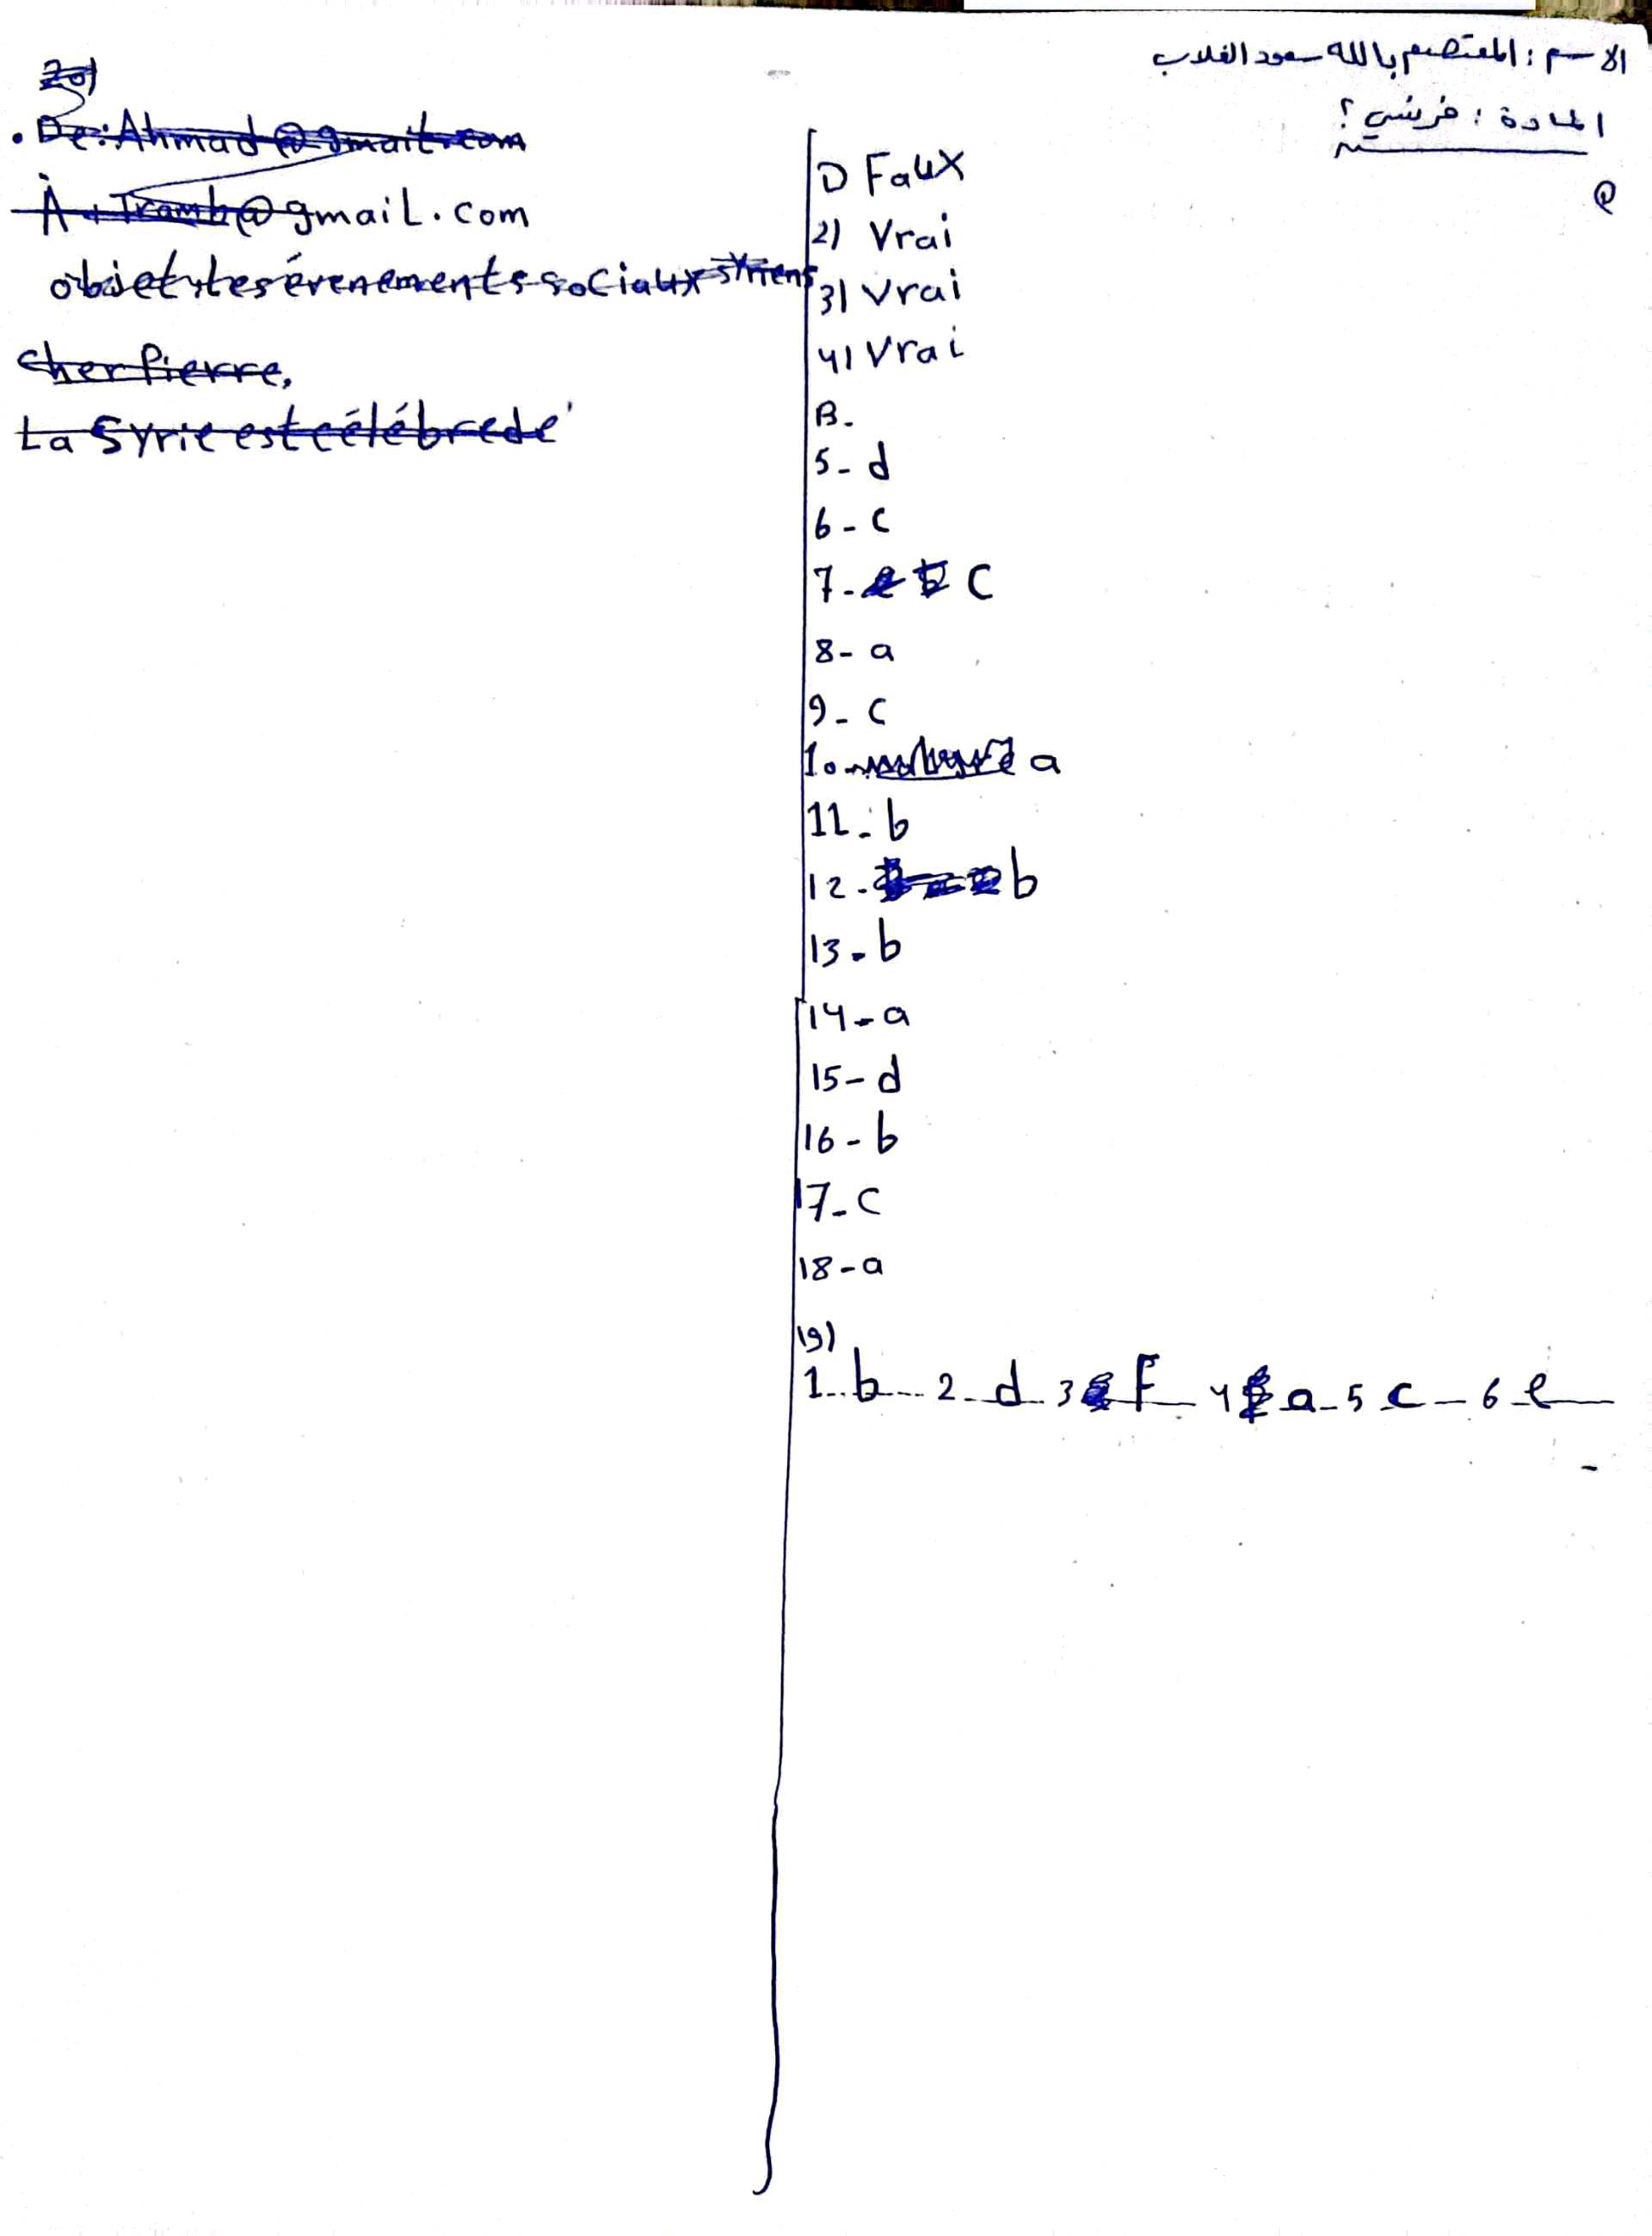 الاسم : المعتصم بالله سعود الغلاب
المادة : فرنسي ؟
1) Faux
2) Vrai
3) Vrai
4) Vrai
B.
5- d
6- c
7- c
8- a
9- c
10- a
11- b
12- b
13- b
14- a
15- d
16- b
17- c
18- a
19)
1- b 2- d 3 F 4 a 5 c 6 e
20)
. De: Ahmad@gmail.com
À : Tramb@gmail.com
objet: les évenements sociaux syriens
cher Pierre,
La Syrie est célébre de